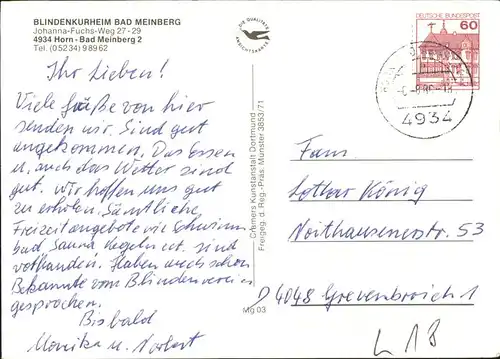 BLINDENKURHEIM BAD MEINBERG
Johanna-Fuchs-Weg 27-29
4934 Horn-Bad Meinberg 2
Tel. (05234) 9 89 62
DIE QUALITÄTS
ANSICHTSKARTE
DEUTSCHE BUNDESPOST
60
4934
Ihr Lieben!
Viele Grüße von hier
senden wir. Sind gut
angekommen. Das Essen
u. auch das Wetter sind
gut. Wir hoffen uns gut
zu erholen. Sämtliche
Freizeitangebote wie Schwimm
bad Sauna Kegeln ect. sind
vorhanden. Haben auch schon
Bekannte vom Blindenverein
gesprochen.
Bis bald
Monika u. Norbert
Cramers Kunstanstalt Dortmund
Freigeg. d. Reg.-Präs. Münster 3853/71
Mg 03
Fam.
Lothar König
Noithausenerstr. 53
D 4048 Grevenbroich 1
L 18